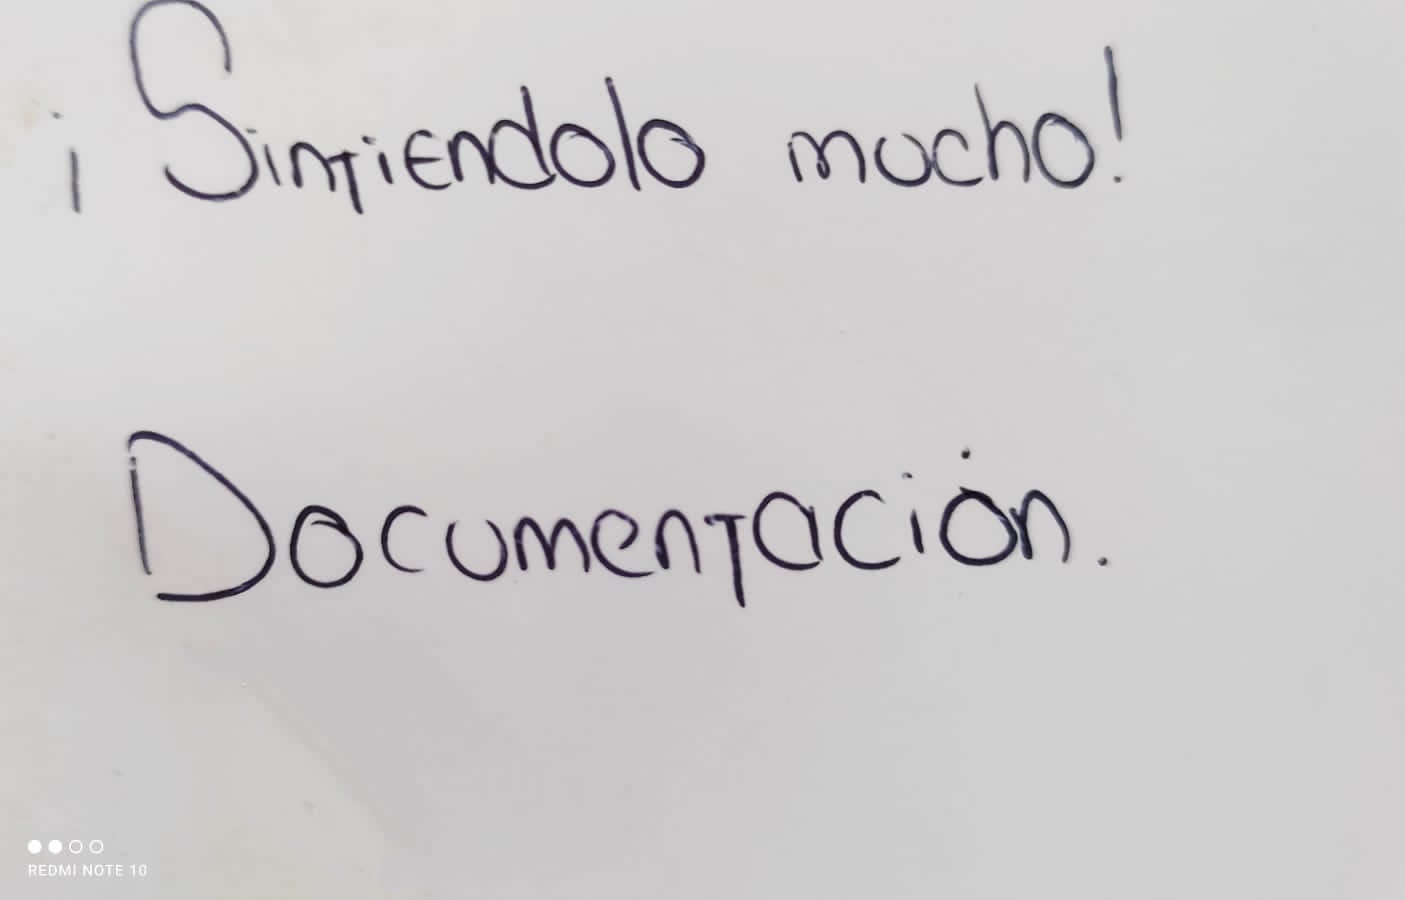 ¡Sintiendolo mucho!
Documentación.
REDMI NOTE 10